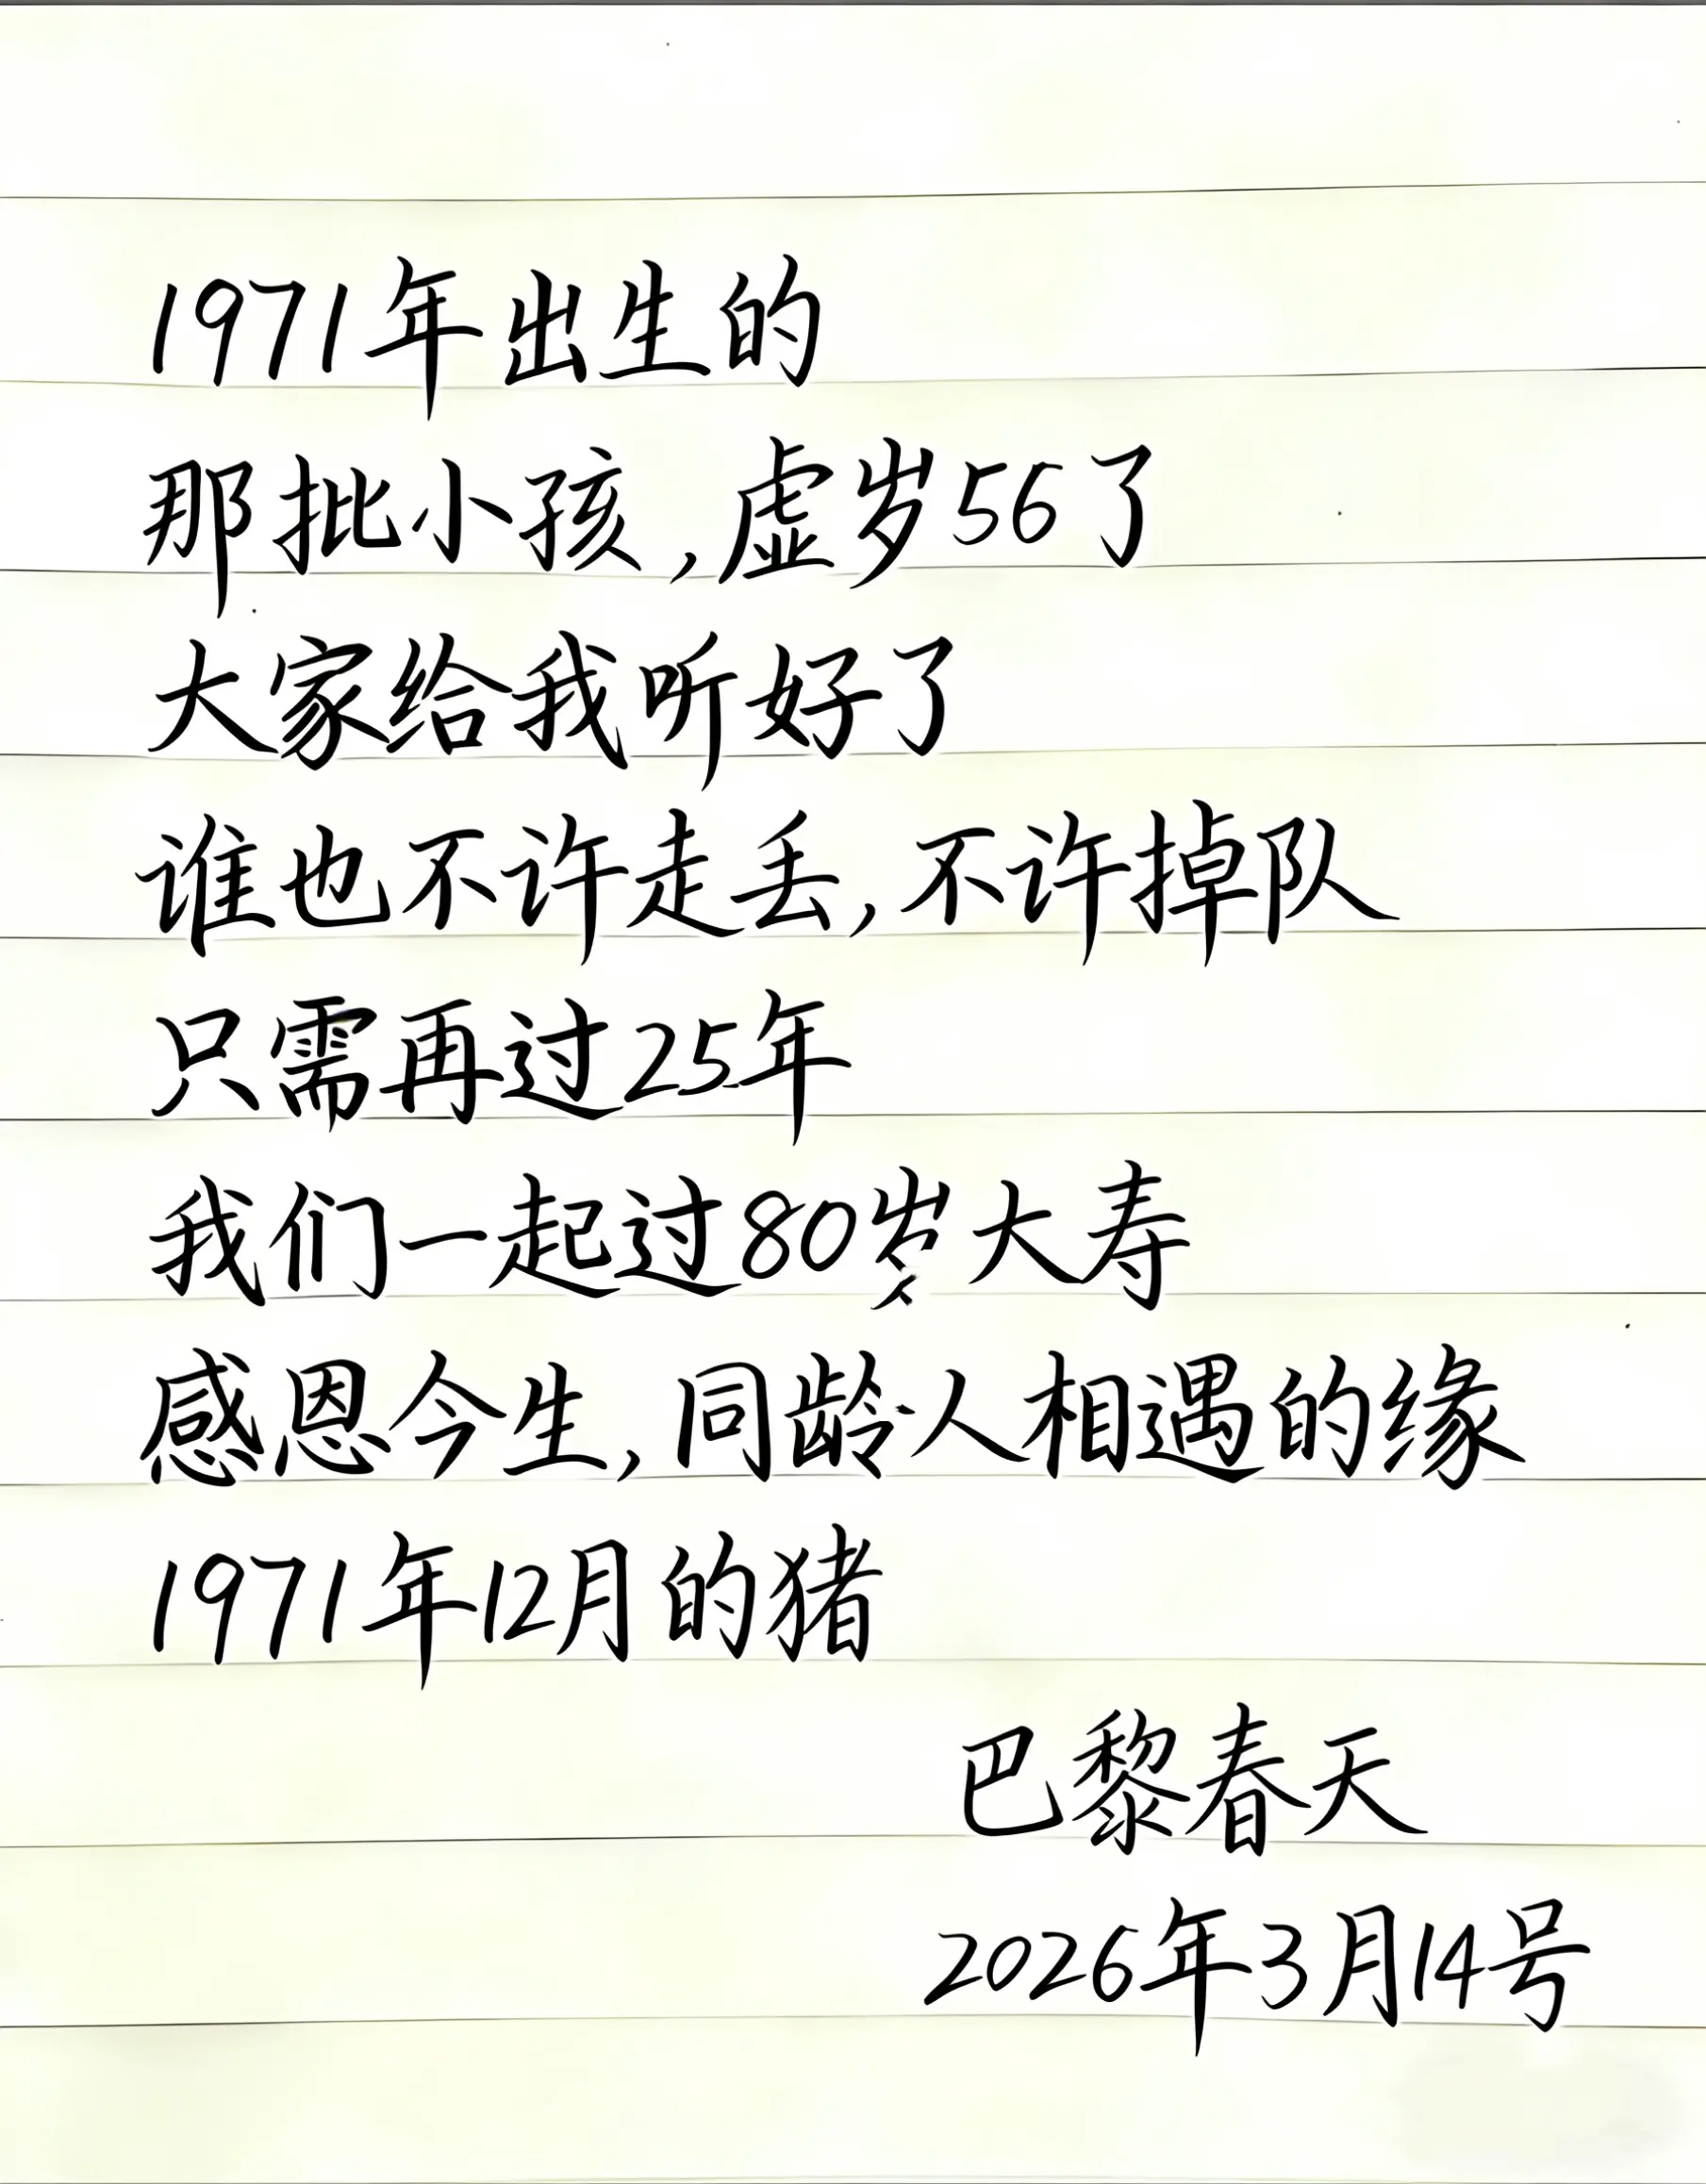 1971年出生的
那批小孩,虚岁56了
大家给我听好了
谁也不许走丢,不许掉队
只需再过25年
我们一起过80岁大寿
感恩今生,同龄人相遇的缘
1971年12月的猪
巴黎春天
2026年3月14号